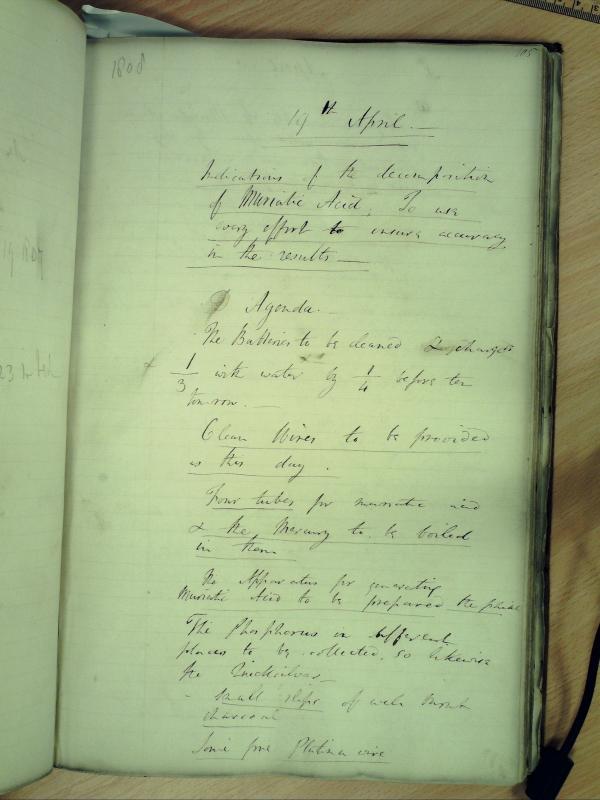 105
1808
19th April. —
Indications of the decomposition
of Muriatic Acid; To use
every effort to insure accuracy
in the results —
Agenda. —
The Batteries to be cleaned & charged
1/3 with water by 1/4 before ten
tomorrow. —
Clean Wires to be provided
as this day.
Four tubes for muriatic acid
& the Mercury to be boiled
in them
The Apparatus for generating
Muriatic Acid to be prepared the
The Phosphorus in different
places to be collected, so likewise
the Quicksilver —
- Small slips of well burnt
charcoal
Some fine Platina wire